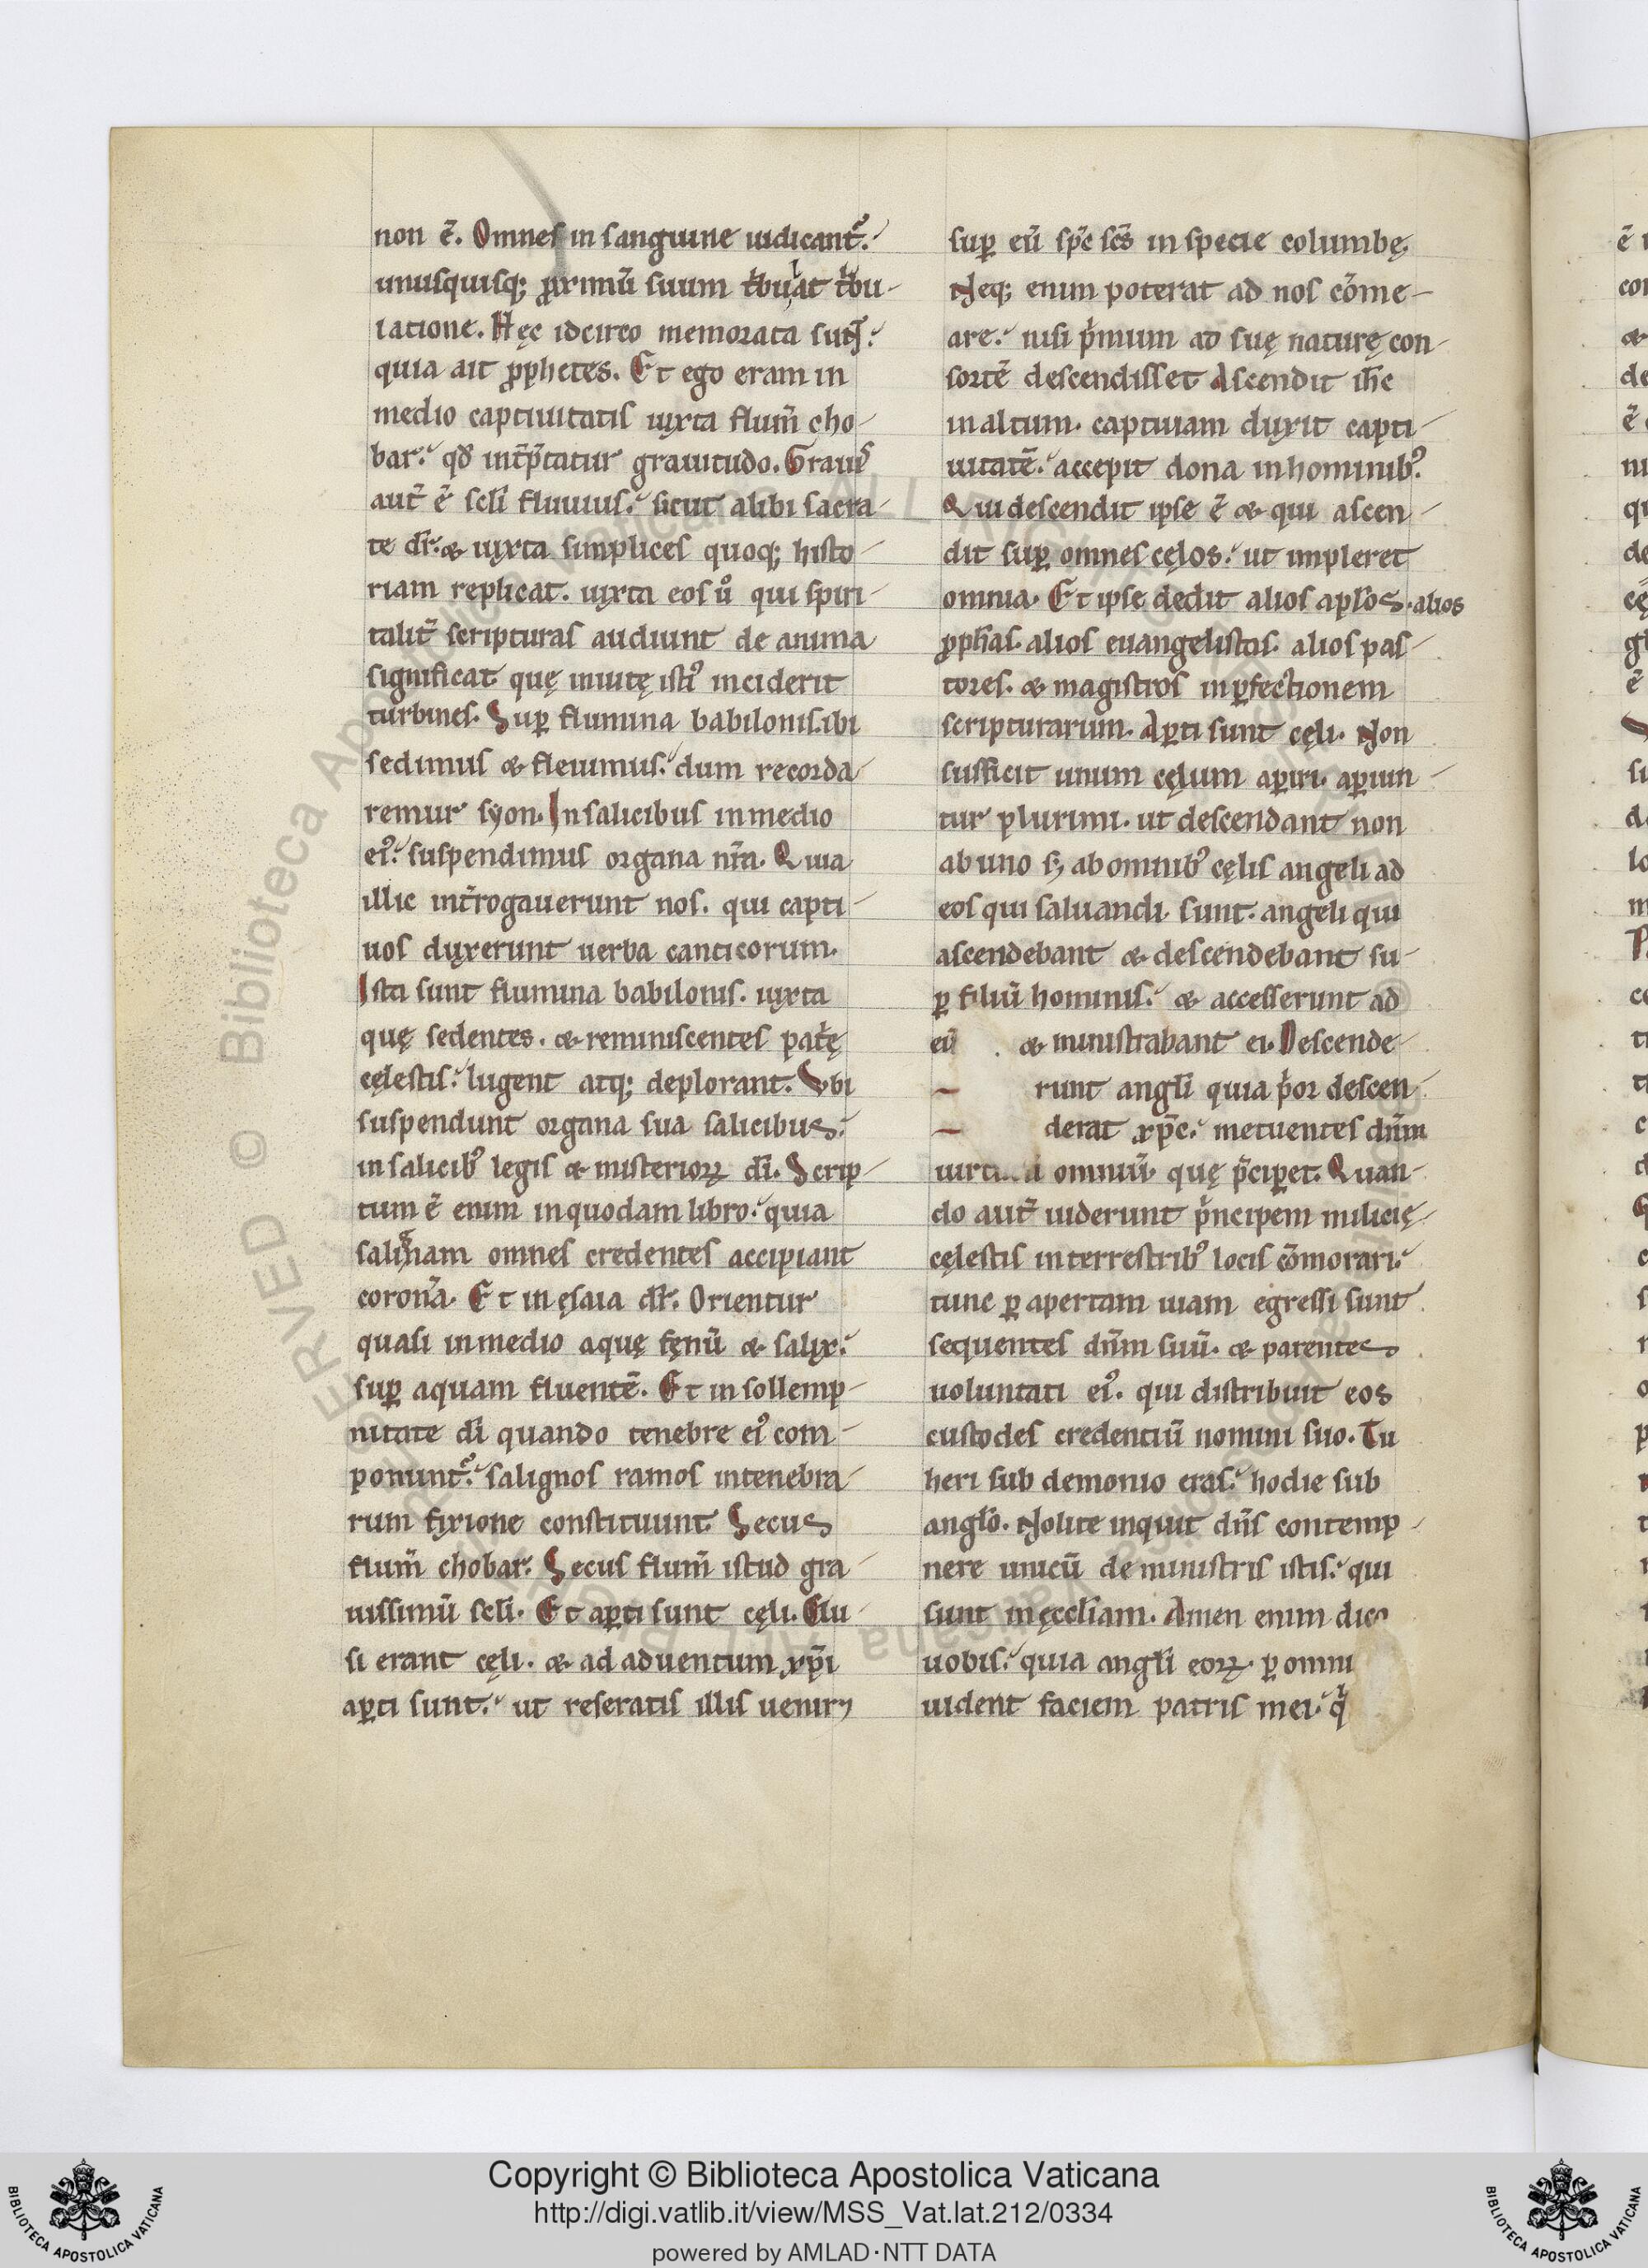 non ē. Omnes in sanguine iudicant᷒.
unusquisq; ꝓximū suum tͥbulat tͥbu-
latione. Hęc idcirco memorata sunt.
quia ait ꝓphetes. Et ego eram in
medio captiuitatis iuxta flum̄ cho-
bar. qd̄ int̄p̄tatur grauitudo. Grauis
aut̄ ē scl̄i fluuius. sicut alibi sacra-
te dr̄. & iuxta simplices quoq; histo-
riam replicat. iuxta eos uͦ qui spiri-
talit̄ scripturas audiunt de anima
significat quę in uitę isti᷒ inciderit
turbines. Suꝑ flumina babilonis. ibi
sedimus & fleuimus. dum recorda-
remur syon. In salicibus in medio
ei᷒. suspendimus organa nr̄a. Quia
illic int̄rogauerunt nos. qui capti-
uos duxerunt uerba canticorum.
Ista sunt flumina babilonis. iuxta
quę sedentes. & reminiscentes pat̄ę
cęlestis. lugent atq; deplorant. Vbi
suspendunt organa sua salicibus.
in salicib᷒ legis & misterioꝝ dī. Scrip-
tum ē enim in quodam libro. quia
salignam omnes credentes accipiant
coronā. Et in ęsaia dr̄. Orientur
quasi in medio aquę fęnū & salix.
suꝑ aquam fluentē. Et in sollemp-
nitate dī quando tenebre ei᷒ com-
ponunt᷒. salignos ramos in tenebra-
rum fixione constituunt. Secus
flum̄ chobar. Secus flum̄ istud gra-
uissimū scl̄i. Et aꝑti sunt cęli. Clu-
si erant cęli. & ad aduentum xp̄i
aꝑti sunt. ut reseratis illis ueniret
suꝑ eū sp̄c sc̄s in specie columbę.
Neq; enim poterat ad nos cōme-
are. nisi pͥmum ad suę naturę con-
sortē descendisset. Ascendit ih̄c
in altum. captiuam duxit capti-
uitatē. accepit dona in hominib᷒.
Qui descendit ipse ē & qui ascen-
dit suꝑ omnes cęlos. ut impleret
omnia. Et ipse dedit alios apl̄os. alios
ꝓph̄as. alios euangelistas. alios pas-
tores. & magistros in ꝑfectionem
scripturarum. Aꝑti sunt cęli. Non
sufficit unum cęlum aꝑiri. aꝑiun-
tur plurimi. ut descendant non
ab uno s; ab omnib᷒ cęlis angeli ad
eos qui saluandi sunt. angeli qui
ascendebant & descendebant su-
ꝑ filiū hominis. & accesserunt ad
eū . & ministrabant ei. Descende-
runt angl̄i quia pͥor descen-
derat xp̄c. metuentes dn̄m
omniū quę p̄ciꝑet. Quan-
do aut̄ uiderunt pͥncipem milicię
cęlestis in terrestrib᷒ locis cōmorari.
tunc ꝑ apertam uiam egressi sunt
sequentes dn̄m suū. & parentes
uoluntati ei᷒. qui distribuit eos
custodes credentiū nomini suo. Tu
heri sub demonio eras. hodie sub
angl̄o. Nolite inquit dn̄s contemp-
nere unicū de ministris istis. qui
sunt in ęccl̄iam. Amen enim dico
uobis. quia angl̄i eoꝝ ꝑ omni
uident faciem patris mei. qͥ
Copyright © Biblioteca Apostolica Vaticana
http://digi.vatlib.it/view/MSS_Vat.lat.212/0334
powered by AMLAD·NTT DATA
BIBLIOTECA APOSTOLICA VATICANA
BIBLIOTECA APOSTOLICA VATICANA